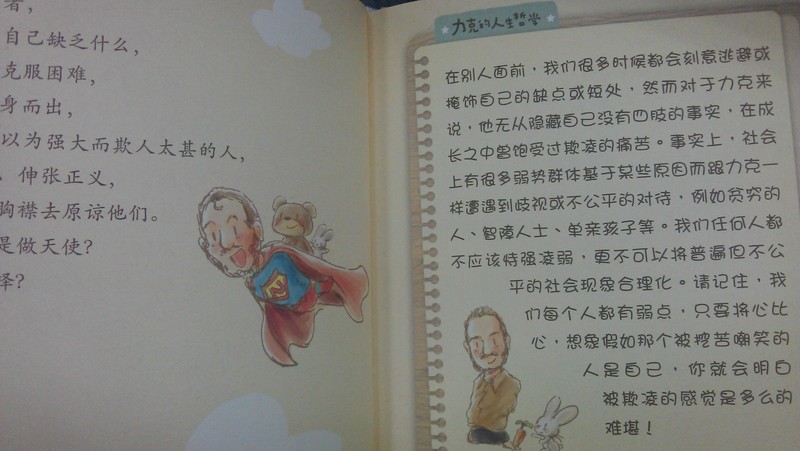 者，
自己缺乏什么，
克服困难，
身而出，
以为强大而欺人太甚的人，
，伸张正义，
胸襟去原谅他们。
是做天使？
择？
力克的人生哲学
在别人面前，我们很多时候都会刻意逃避或
掩饰自己的缺点或短处，然而对于力克来
说，他无从隐藏自己没有四肢的事实，在成
长之中曾饱受过欺凌的痛苦。事实上，社会
上有很多弱势群体基于某些原因而跟力克一
样遭遇到歧视或不公平的对待，例如贫穷的
人、智障人士、单亲孩子等。我们任何人都
不应该恃强凌弱，更不可以将普遍但不公
平的社会现象合理化。请记住，我
们每个人都有弱点，只要将心比
心，想象假如那个被挖苦嘲笑的
人是自己，你就会明白
被欺凌的感觉是多么的
难堪！